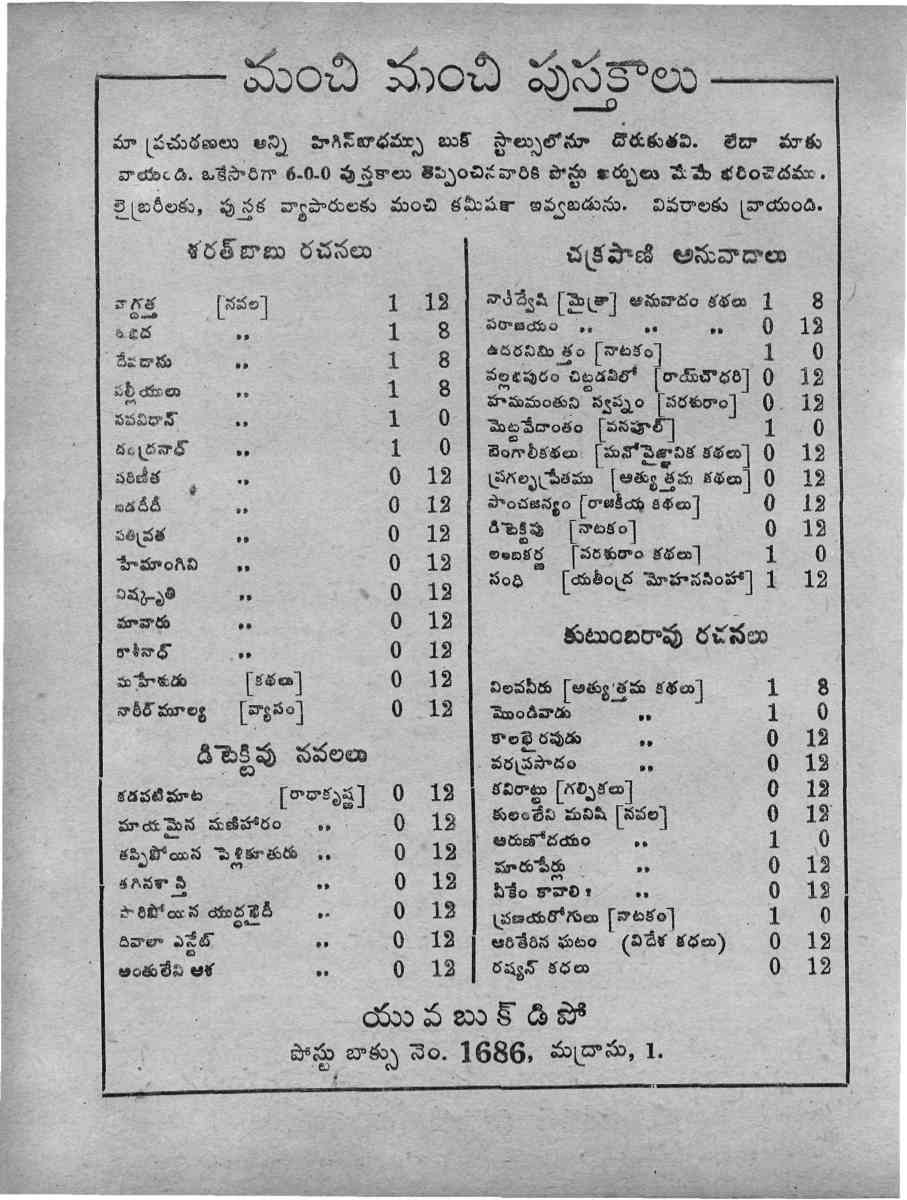 మంచి మంచి పుస్తకాలు
మా ప్రచురణలు అన్ని హిగిన్‌బాథమ్సు బుక్ స్టాల్సులోనూ దొరుకుతవి. లేదా మాకు
వ్రాయండి. ఒకేసారిగా 6-0-0 పుస్తకాలు తెప్పించినవారికి పోస్టు ఖర్చులు మేమే భరించెదము.
లైబ్రరీలకు, పుస్తక వ్యాపారులకు మంచి కమీషకా ఇవ్వబడును. వివరాలకు వ్రాయండి.
శరత్‌బాబు రచనలు
వాగ్దత్త [నవల] 1 12
శుభద ,, 1 8
దేవదాసు ,, 1 8
పల్లీయులు ,, 1 8
నవవిధాన్ ,, 1 0
,, 1 0
పరిణీత ,, 0 12
బడదీదీ ,, 0 12
పతివ్రత ,, 0 12
హేమాంగిని ,, 0 12
నిష్కృతి ,, 0 12
మావారు ,, 0 12
కాశీనాధ్ ,, 0 12
మహేశుడు [కథలు] 0 12
నారీర్‌మూల్య [వ్యాసం] 0 12
డిటెక్టివు నవలలు
కడపటిమాట [రాధాకృష్ణ] 0 12
మాయమైన మణిహారం ,, 0 12
తప్పిపోయిన పెళ్లికూతురు ,, 0 12
తగినశాస్తి ,, 0 12
పారిపోయిన యుద్ధఖైదీ ,, 0 12
దివాలా ఎస్టేట్ ,, 0 12
అంతులేని ఆశ ,, 0 12
చక్రపాణి అనువాదాలు
నారీద్వేషి [మైత్రా] అనువాదం కథలు 1 8
పరాజయం ,, ,, ,, 0 12
ఉదరనిమిత్తం [నాటకం] 1 0
వల్లభపురం చిట్టడవిలో [రాయ్‌చౌధరి] 0 12
హనుమంతుని స్వప్నం [పరశురాం] 0 12
మెట్టవేదాంతం [వనఫూల్] 1 0
బెంగాలీకథలు [మనోవైజ్ఞానిక కథలు] 0 12
ప్రగల్భప్రేతము [అత్యుత్తమ కథలు] 0 12
పాంచజన్యం [రాజకీయ కథలు] 0 12
డిటెక్టివు [నాటకం] 0 12
లంబకర్ణ [పరశురాం కథలు] 1 0
సంధి [యతీంద్ర మోహనసింహా] 1 12
కుటుంబరావు రచనలు
నిలవనీరు [అత్యుత్తమ కథలు] 1 8
మొండివాడు ,, 1 0
కాలభైరవుడు ,, 0 12
వరప్రసాదం ,, 0 12
కవిరాట్టు [గల్పికలు] 0 12
కులంలేని మనిషి [నవల] 0 12
అరుణోదయం ,, 1 0
మారుపేర్లు ,, 0 12
నీకేం కావాలి? ,, 0 12
ప్రణయరోగులు [నాటకం] 1 0
ఆరితేరిన ఘటం (విదేశ కధలు) 0 12
రష్యన్ కధలు 0 12
యువ బుక్ డిపో
పోస్టు బాక్సు నెం. 1686, మద్రాసు, 1.